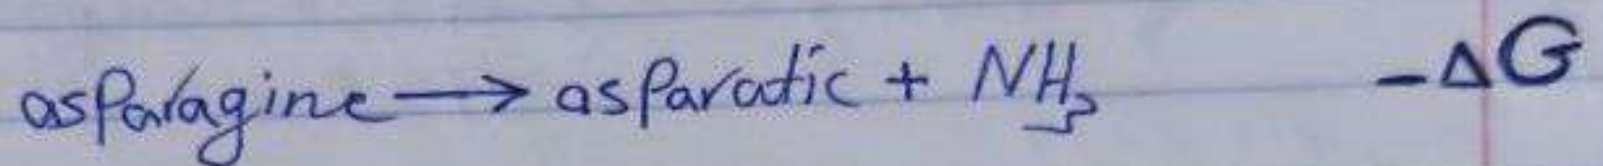 asparagine → asparatic + NH₃ -ΔG